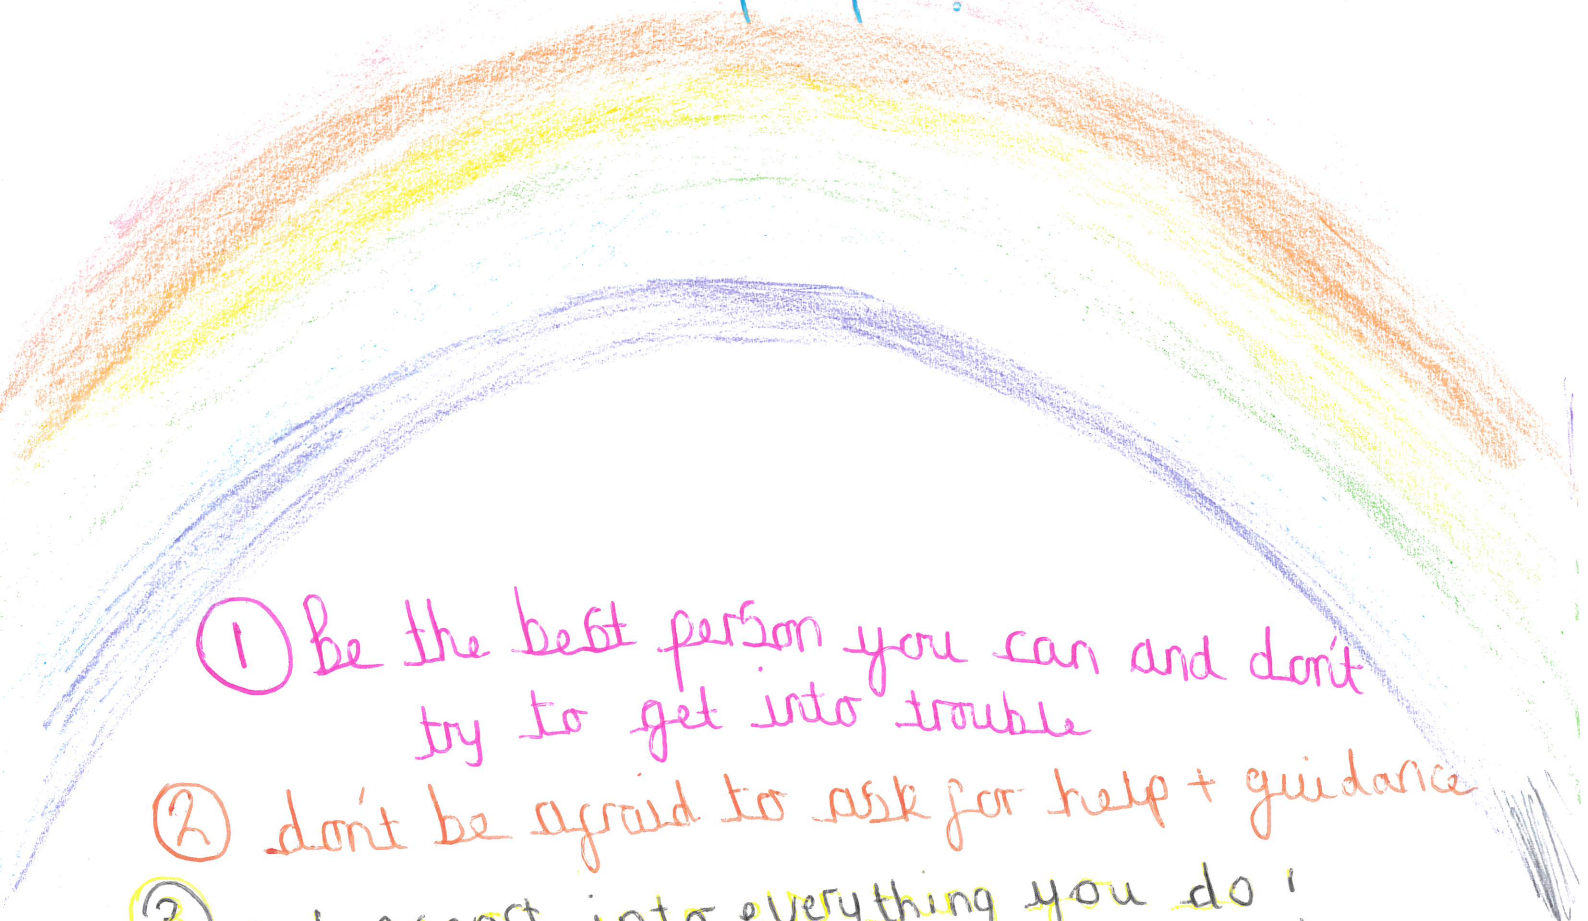 ① Be the best person you can and don't
try to get into trouble
② don't be afraid to ask for help + guidance
③ into everything you do!